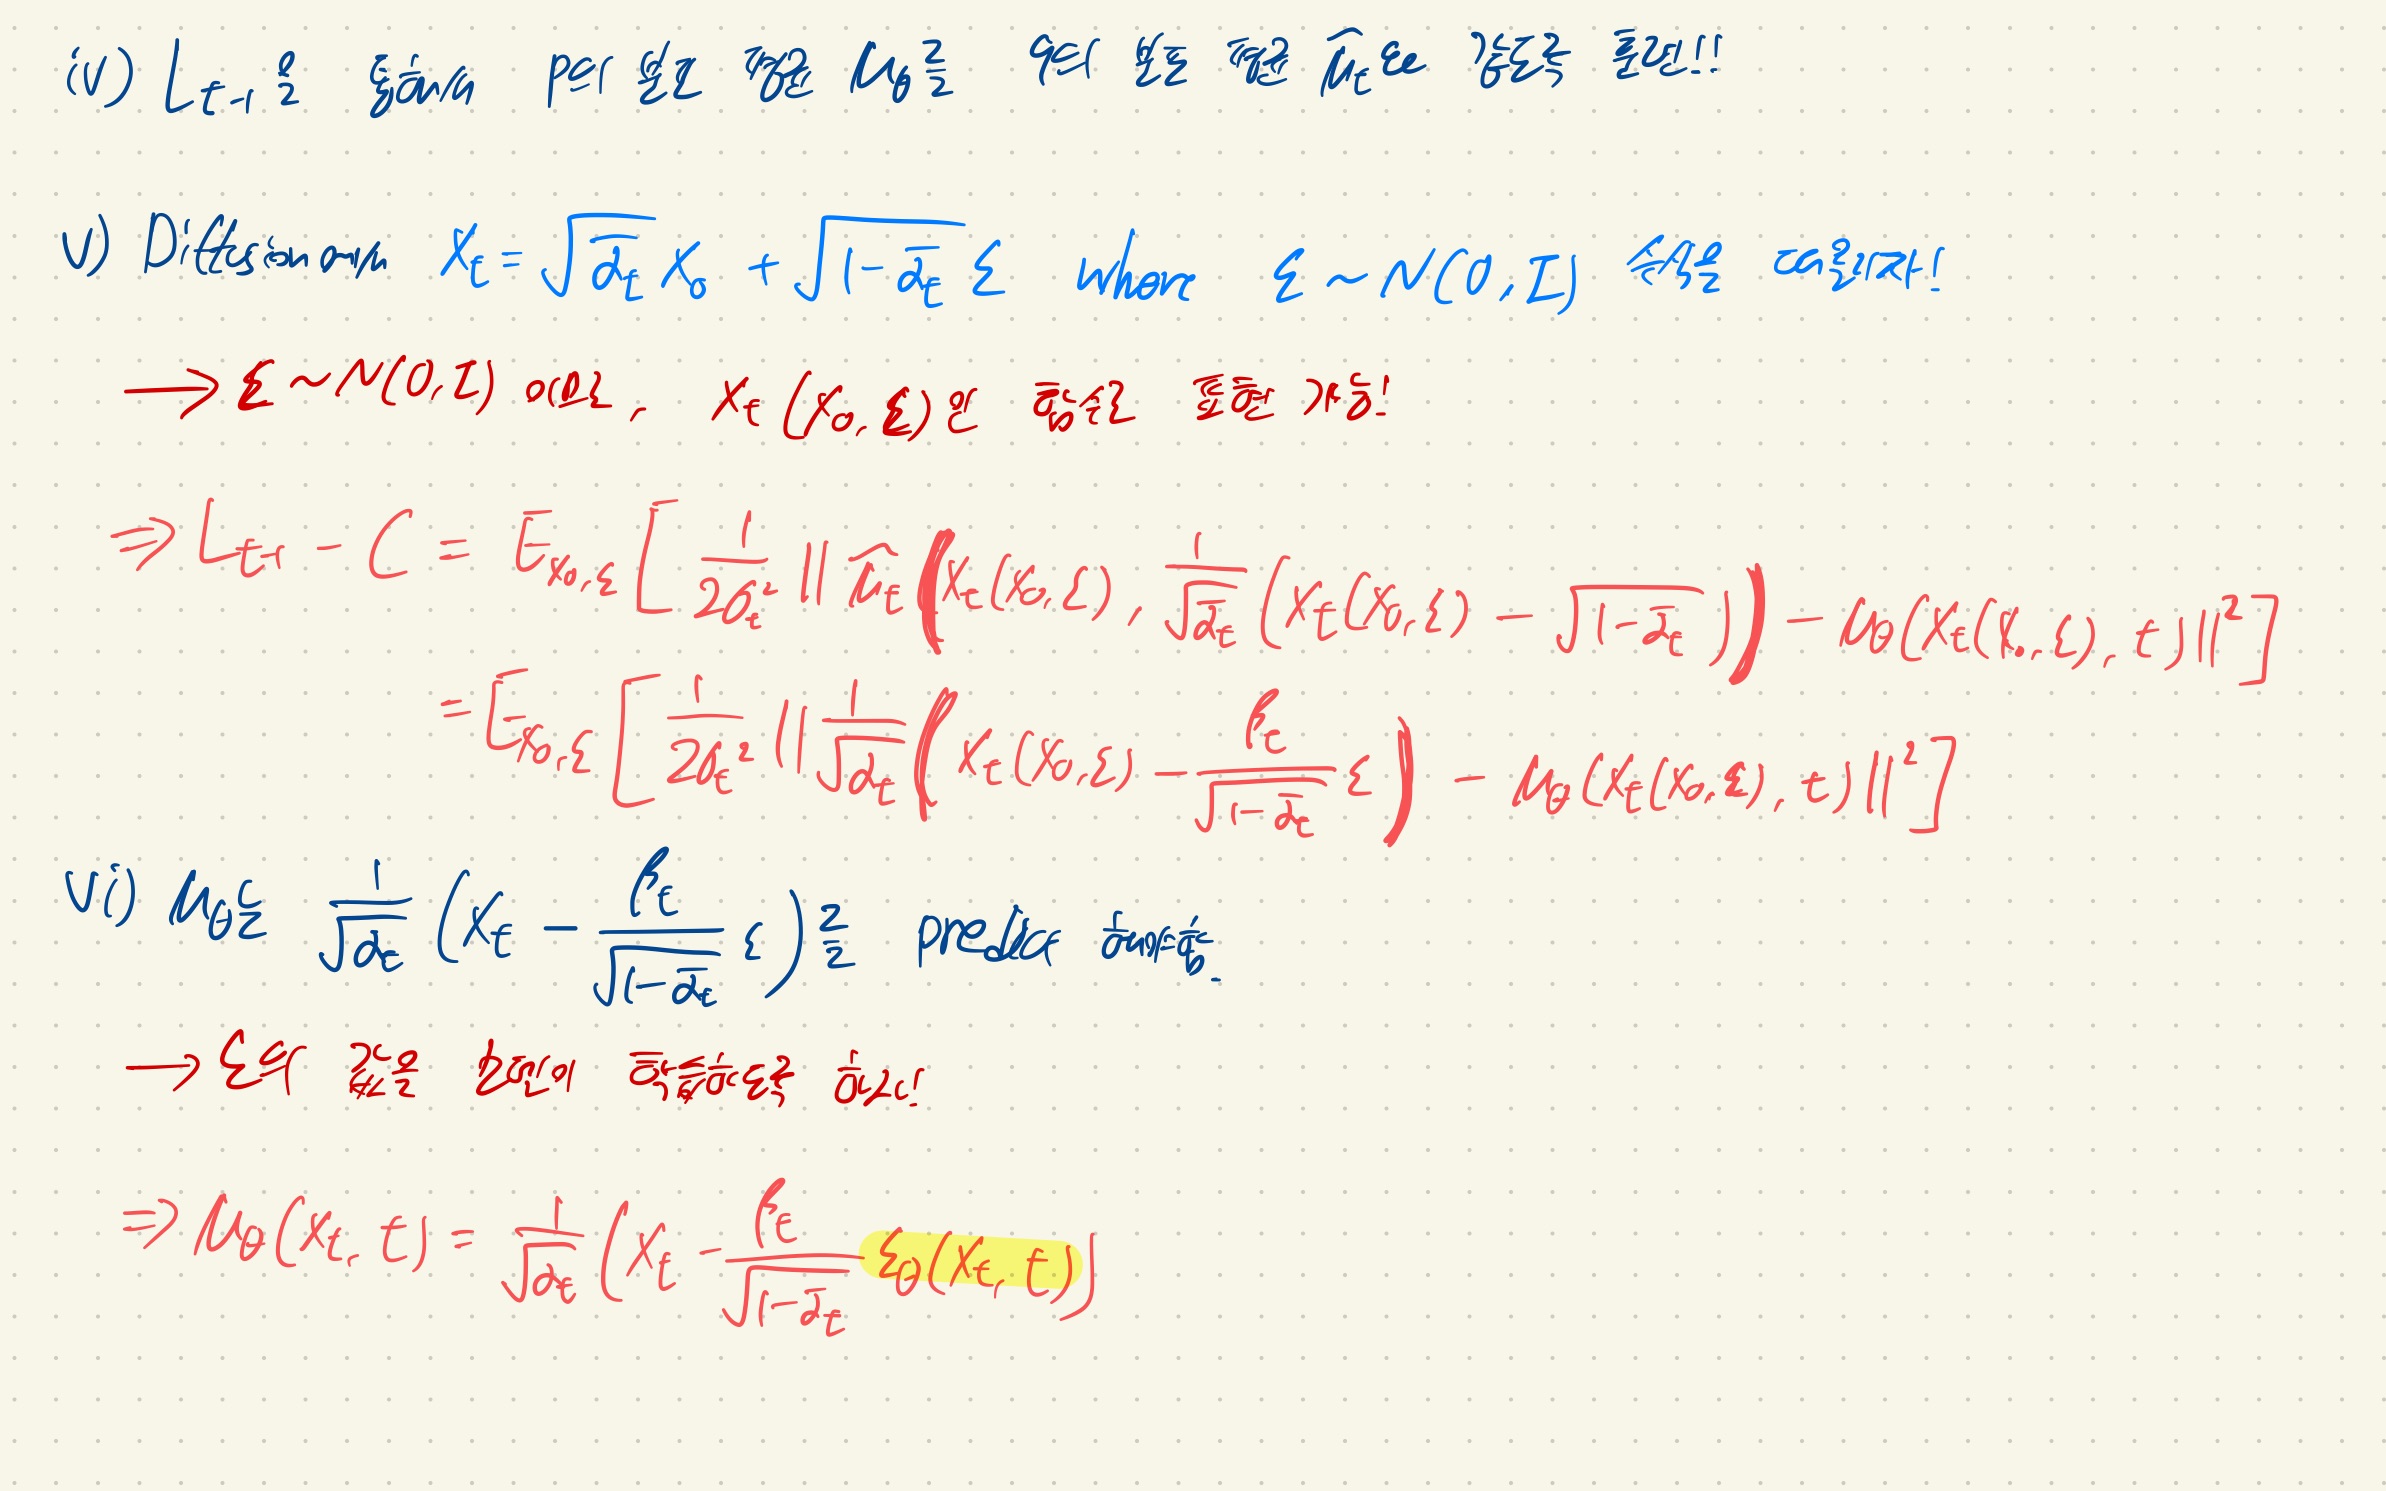 iv) L_{t-1}을 통해서 p의 분포 평균 μ_θ를 q의 분포 평균 μ̃_t와 같도록 훈련!!
v) Diffusion에서 X_t = √ᾱ_t X_0 + √(1-ᾱ_t) ε where ε ~ N(0, I) 수식을 떠올리자!
→ ε ~ N(0, I) 이므로, X_t(X_0, ε)인 함수로 표현 가능!
⇒ L_{t-1} - C = E_{X_0, ε} [ 1/(2σ_t²) || μ̃_t ( X_t(X_0, ε), 1/√ᾱ_t ( X_t(X_0, ε) - √(1-ᾱ_t) ) ) - μ_θ(X_t(X_0, ε), t) ||² ]
= E_{X_0, ε} [ 1/(2σ_t²) || 1/√α_t ( X_t(X_0, ε) - β_t/√(1-ᾱ_t) ε ) - μ_θ(X_t(X_0, ε), t) ||² ]
vi) μ_θ는 1/√α_t ( X_t - β_t/√(1-ᾱ_t) ε )를 predict 해야함.
→ ε의 값을 모델이 학습하도록 하자!
⇒ μ_θ(X_t, t) = 1/√α_t ( X_t - β_t/√(1-ᾱ_t) ε_θ(X_t, t) )